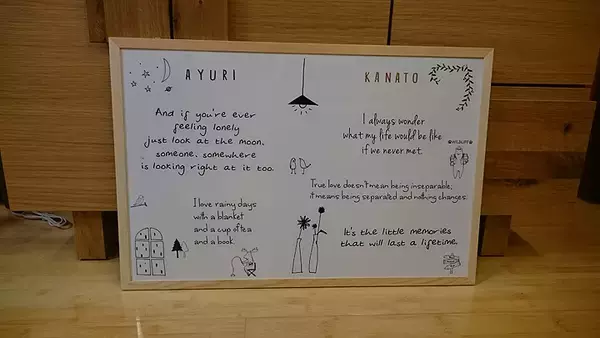 AYURI
And if you're ever
feeling lonely
just look at the moon.
someone, somewhere
is looking right at it too.
I love rainy days
with a blanket
and a cup of tea
and a book.
KANATO
I always wonder
what my life would be like
if we never met.
True love doesn't mean being inseparable;
it means being separated and nothing changes.
It's the little memories
that will last a lifetime.